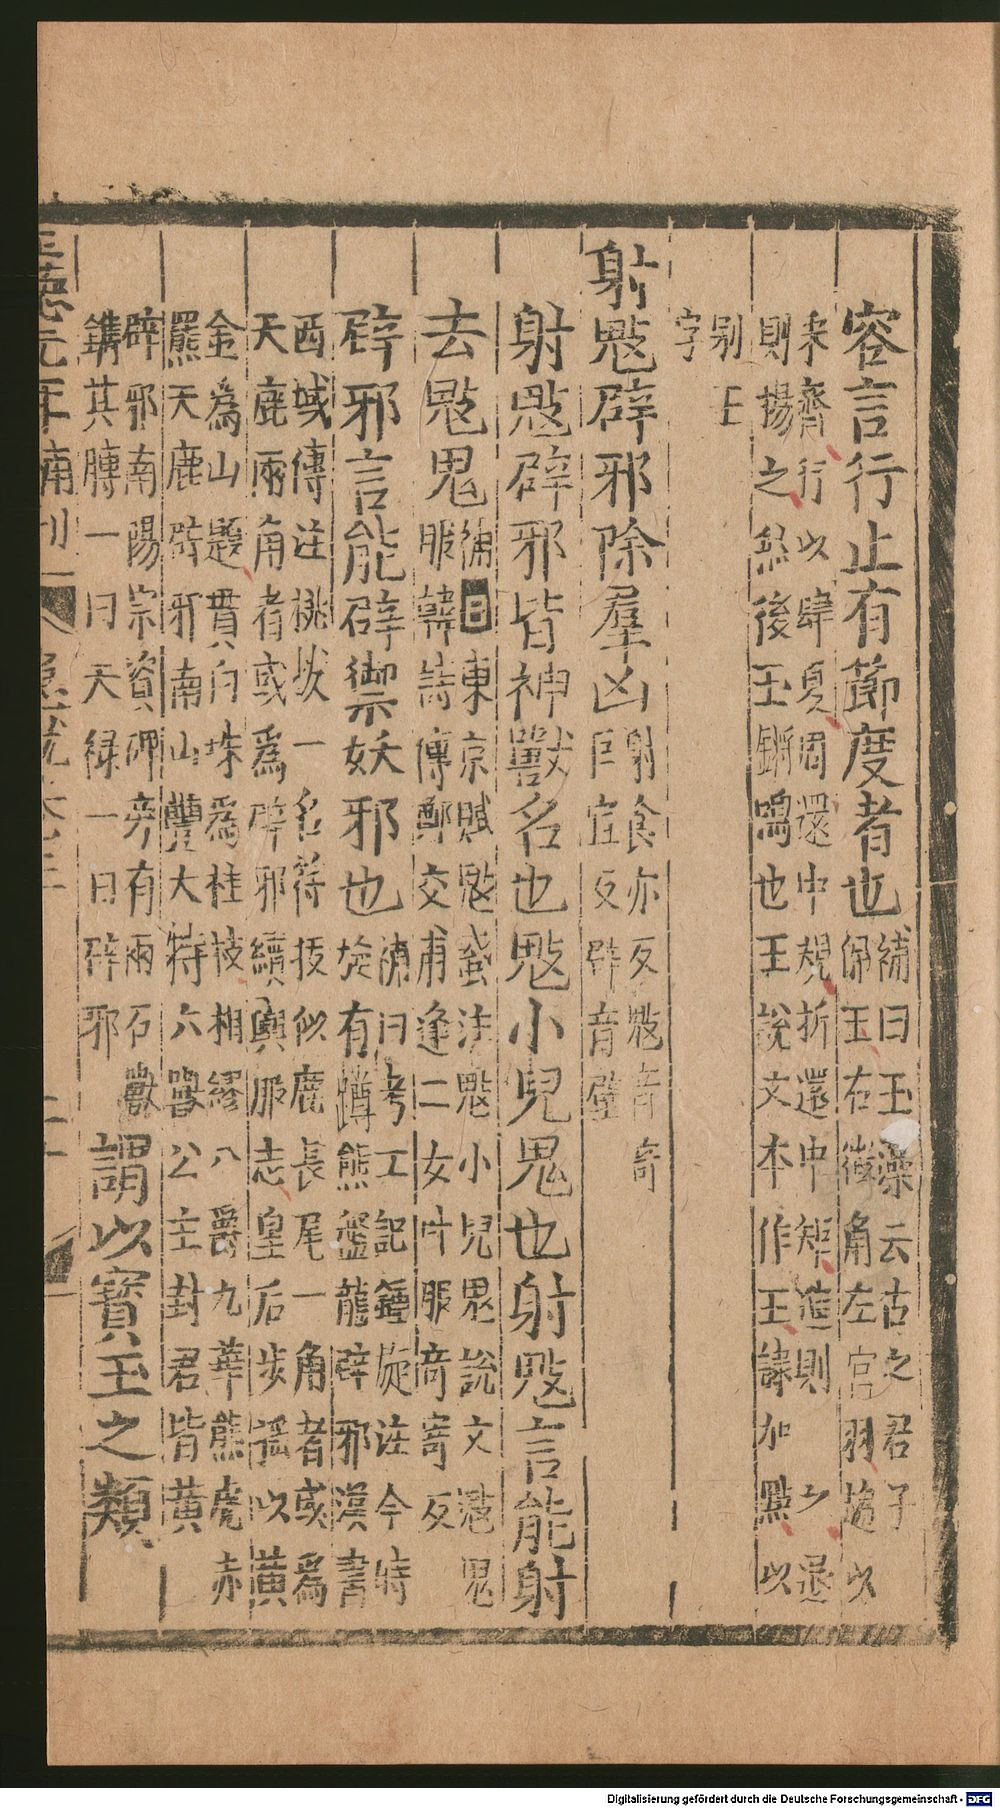 容言行止有節度者也補曰玉藻云古之君子
佩玉右徵角左宮羽趨以
采齊行以肆夏周還中規折還中矩進則之退
則揚之然後玉鏘鳴也王說文本作王隷加點以
別王
字
射鬾辟邪除羣凶射食亦反鬾音奇
巨宜反辟音壁
射鬾辟邪皆神獸名也鬾小兒鬼也射鬾言能射
去鬾鬼補曰東京賦鬾蜮注鬾小兒鬼說文鬾鬼
服韓詩傳鄭交甫逢二女叶服奇寄反
辟邪言能辟禦妖邪也補曰考工記鍾旋注今時
旋有蹲熊盤龍辟邪漢書
西域傳注桃拔一名符拔似鹿長尾一角者或爲
天鹿兩角者或爲辟邪續輿服志皇后步搖以黄
金爲山題貫白珠爲桂枝相繆八爵九華熊虎赤
羆天鹿辟邪南山豐大特六獸公主封君皆黄
辟邪南陽宗資碑旁有兩石獸
鐫其膊一曰天祿一曰辟邪謂以寶玉之類
至德元年
急就
Digitalisierung gefördert durch die Deutsche Forschungsgemeinschaft - DFG